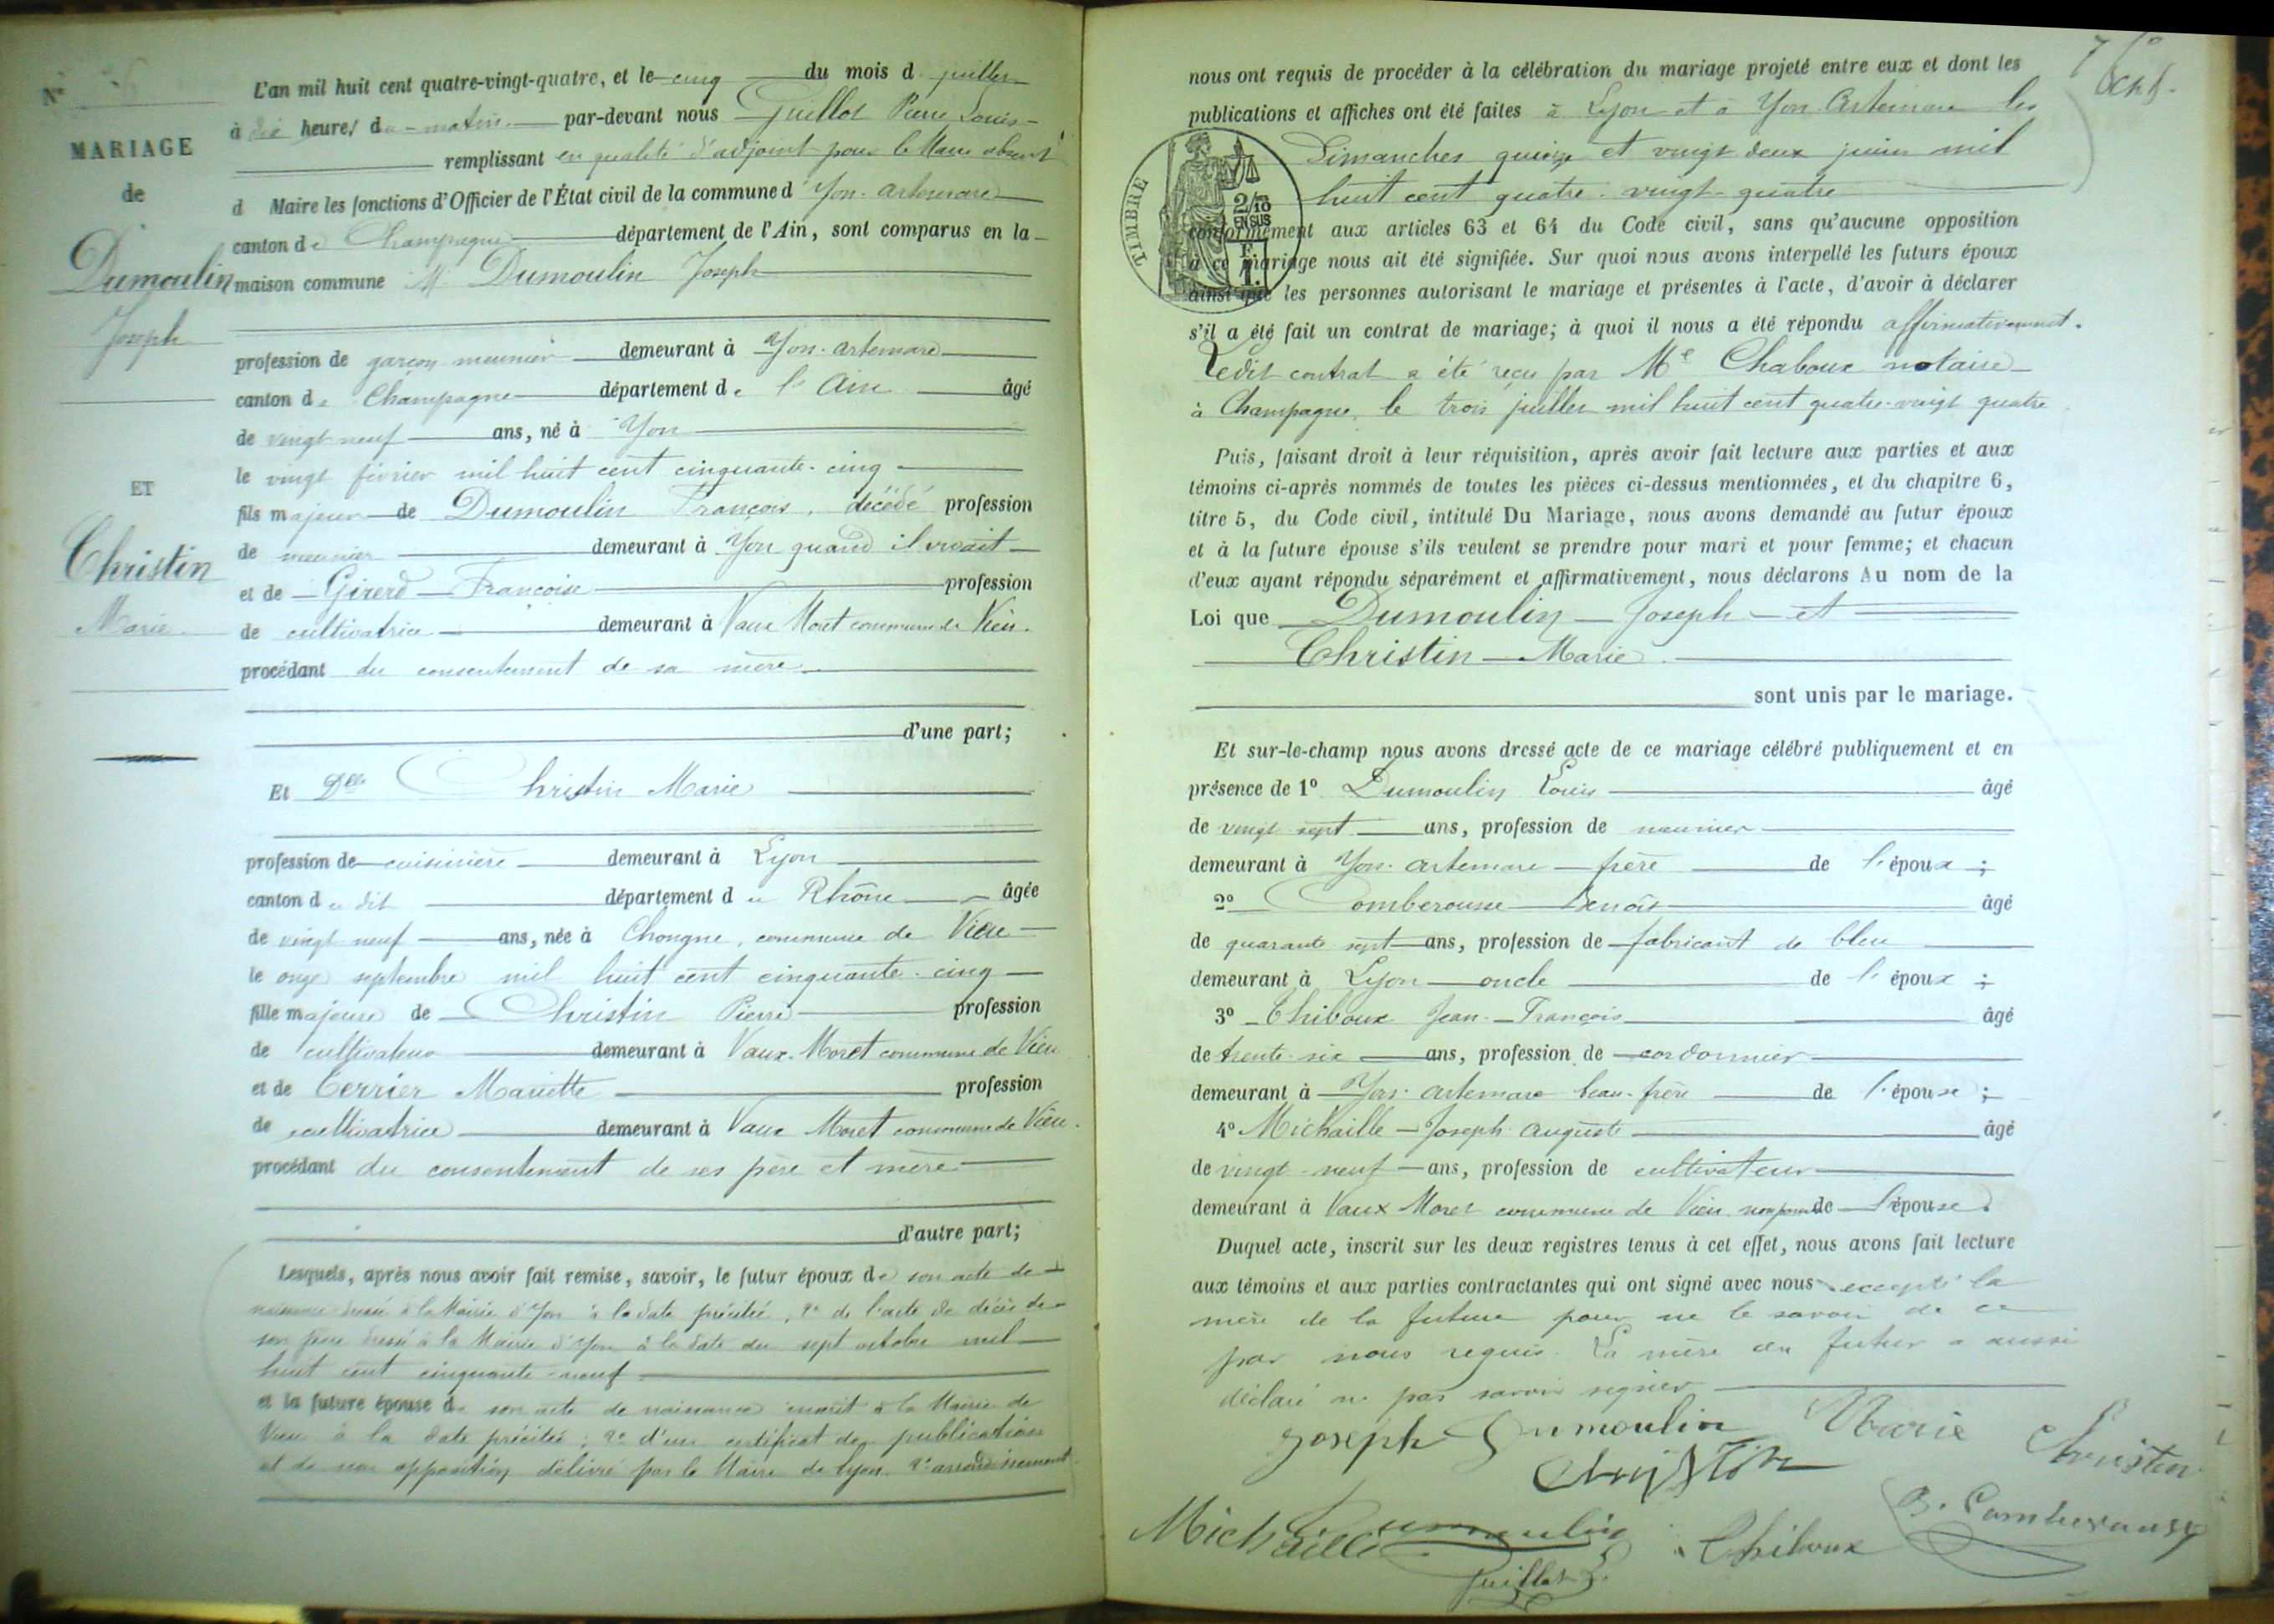 N°
MARIAGE
de
Dumoulin
Joseph
ET
Christin
Marie
L'an mil huit cent quatre-vingt-quatre, et le cinq du mois d juillet
à dix heures du matin par-devant nous Guillot Pierre Louis
remplissant en qualité d'adjoint pour le Maire absent
d Maire les fonctions d'Officier de l'État civil de la commune d'Yon-artemare
canton de Champagne département de l'Ain, sont comparus en la
maison commune M Dumoulin Joseph
profession de garçon meunier demeurant à Yon-artemare
canton de Champagne département de l'Ain âgé
de vingt neuf ans, né à Yon
le vingt février mil huit cent cinquante-cinq
fils majeur de Dumoulin François, décédé profession
de meunier demeurant à Yon quand il vivait
et de Girerd Françoise profession
de cultivatrice demeurant à Vaux Moret commune de Vieu.
procédant du consentement de sa mère
d'une part;
Et Dlle Christin Marie
profession de cuisinière demeurant à Lyon
canton du dit département du Rhône âgée
de vingt neuf ans, née à Chongne, commune de Vieu
le onze septembre mil huit cent cinquante-cinq
fille majeure de Christin Pierre profession
de cultivateur demeurant à Vaux-Moret commune de Vieu
et de Terrier Mariette profession
de cultivatrice demeurant à Vaux Moret commune de Vieu.
procédant du consentement de ses père et mère
d'autre part;
Lesquels, après nous avoir fait remise, savoir, le futur époux de son acte de
naissance dressé à la Mairie d'Yon à la date précitée, 2° de l'acte de décès de
son père dressé à la Mairie d'Yon à la date du sept octobre mil
huit cent cinquante-neuf
et la future épouse de son acte de naissance inscrit à la Mairie de
Vieu à la date précitée; 2° d'un certificat de publication
et de non opposition délivré par le Maire de Lyon 2e arrondissement
nous ont requis de procéder à la célébration du mariage projeté entre eux et dont les
publications et affiches ont été faites à Lyon et à Yon-Artemare les
Dimanches quinze et vingt deux juin mil
huit cent quatre-vingt-quatre
TIMBRE
2/10
EN SUS
conformément aux articles 63 et 64 du Code civil, sans qu'aucune opposition
à ce mariage nous ait été signifiée. Sur quoi nous avons interpellé les futurs époux
ainsi que les personnes autorisant le mariage et présentes à l'acte, d'avoir à déclarer
s'il a été fait un contrat de mariage; à quoi il nous a été répondu affirmativement.
Ledit contrat a été reçu par Me Chaboux notaire
à Champagne, le trois juillet mil huit cent quatre-vingt quatre
Puis, faisant droit à leur réquisition, après avoir fait lecture aux parties et aux
témoins ci-après nommés de toutes les pièces ci-dessus mentionnées, et du chapitre 6,
titre 5, du Code civil, intitulé Du Mariage, nous avons demandé au futur époux
et à la future épouse s'ils veulent se prendre pour mari et pour femme; et chacun
d'eux ayant répondu séparément et affirmativement, nous déclarons Au nom de la
Loi que Dumoulin Joseph et
Christin Marie
sont unis par le mariage.
Et sur-le-champ nous avons dressé acte de ce mariage célébré publiquement et en
présence de 1° Dumoulin Louis âgé
de vingt sept ans, profession de meunier
demeurant à Yon-artemare frère de l'époux;
2° Comberousse Benoît âgé
de quarante sept ans, profession de fabricant de bleu
demeurant à Lyon oncle de l'époux;
3° Thiboux Jean-François âgé
de trente-six ans, profession de cordonnier
demeurant à Yon-artemare beau-frère de l'épouse;
4° Michaille Joseph Auguste âgé
de vingt-neuf ans, profession de cultivateur
demeurant à Vaux Moret commune de Vieu de l'épouse.
Duquel acte, inscrit sur les deux registres tenus à cet effet, nous avons fait lecture
aux témoins et aux parties contractantes qui ont signé avec nous excepté la
mère de la future pour ne le savoir de ce
par nous requis. La mère du futur a aussi
déclaré ne pas savoir signer
Joseph Dumoulin Marie Christin
Christin
Michaille Dumoulin Thiboux B. Comberousse
Guillot